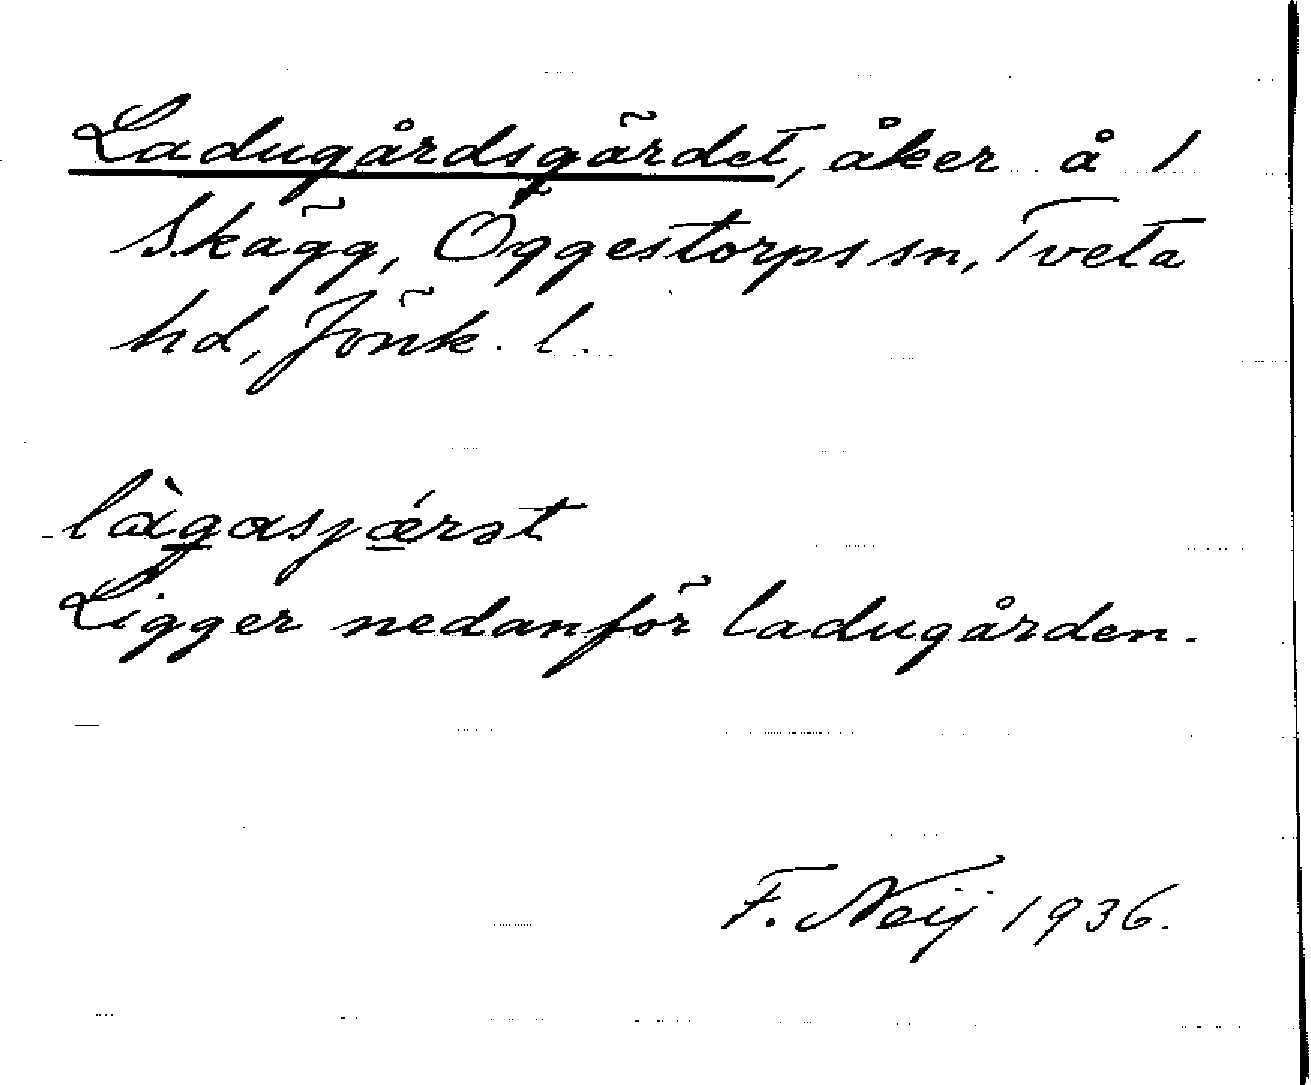 Ladugårdsgärdet, åker å 1
Skägg, Öggestorps sn, Tveta
hd, Jönk. l.
làgasjǽrət
Ligger nedanför ladugården.
F. Neij 1936.